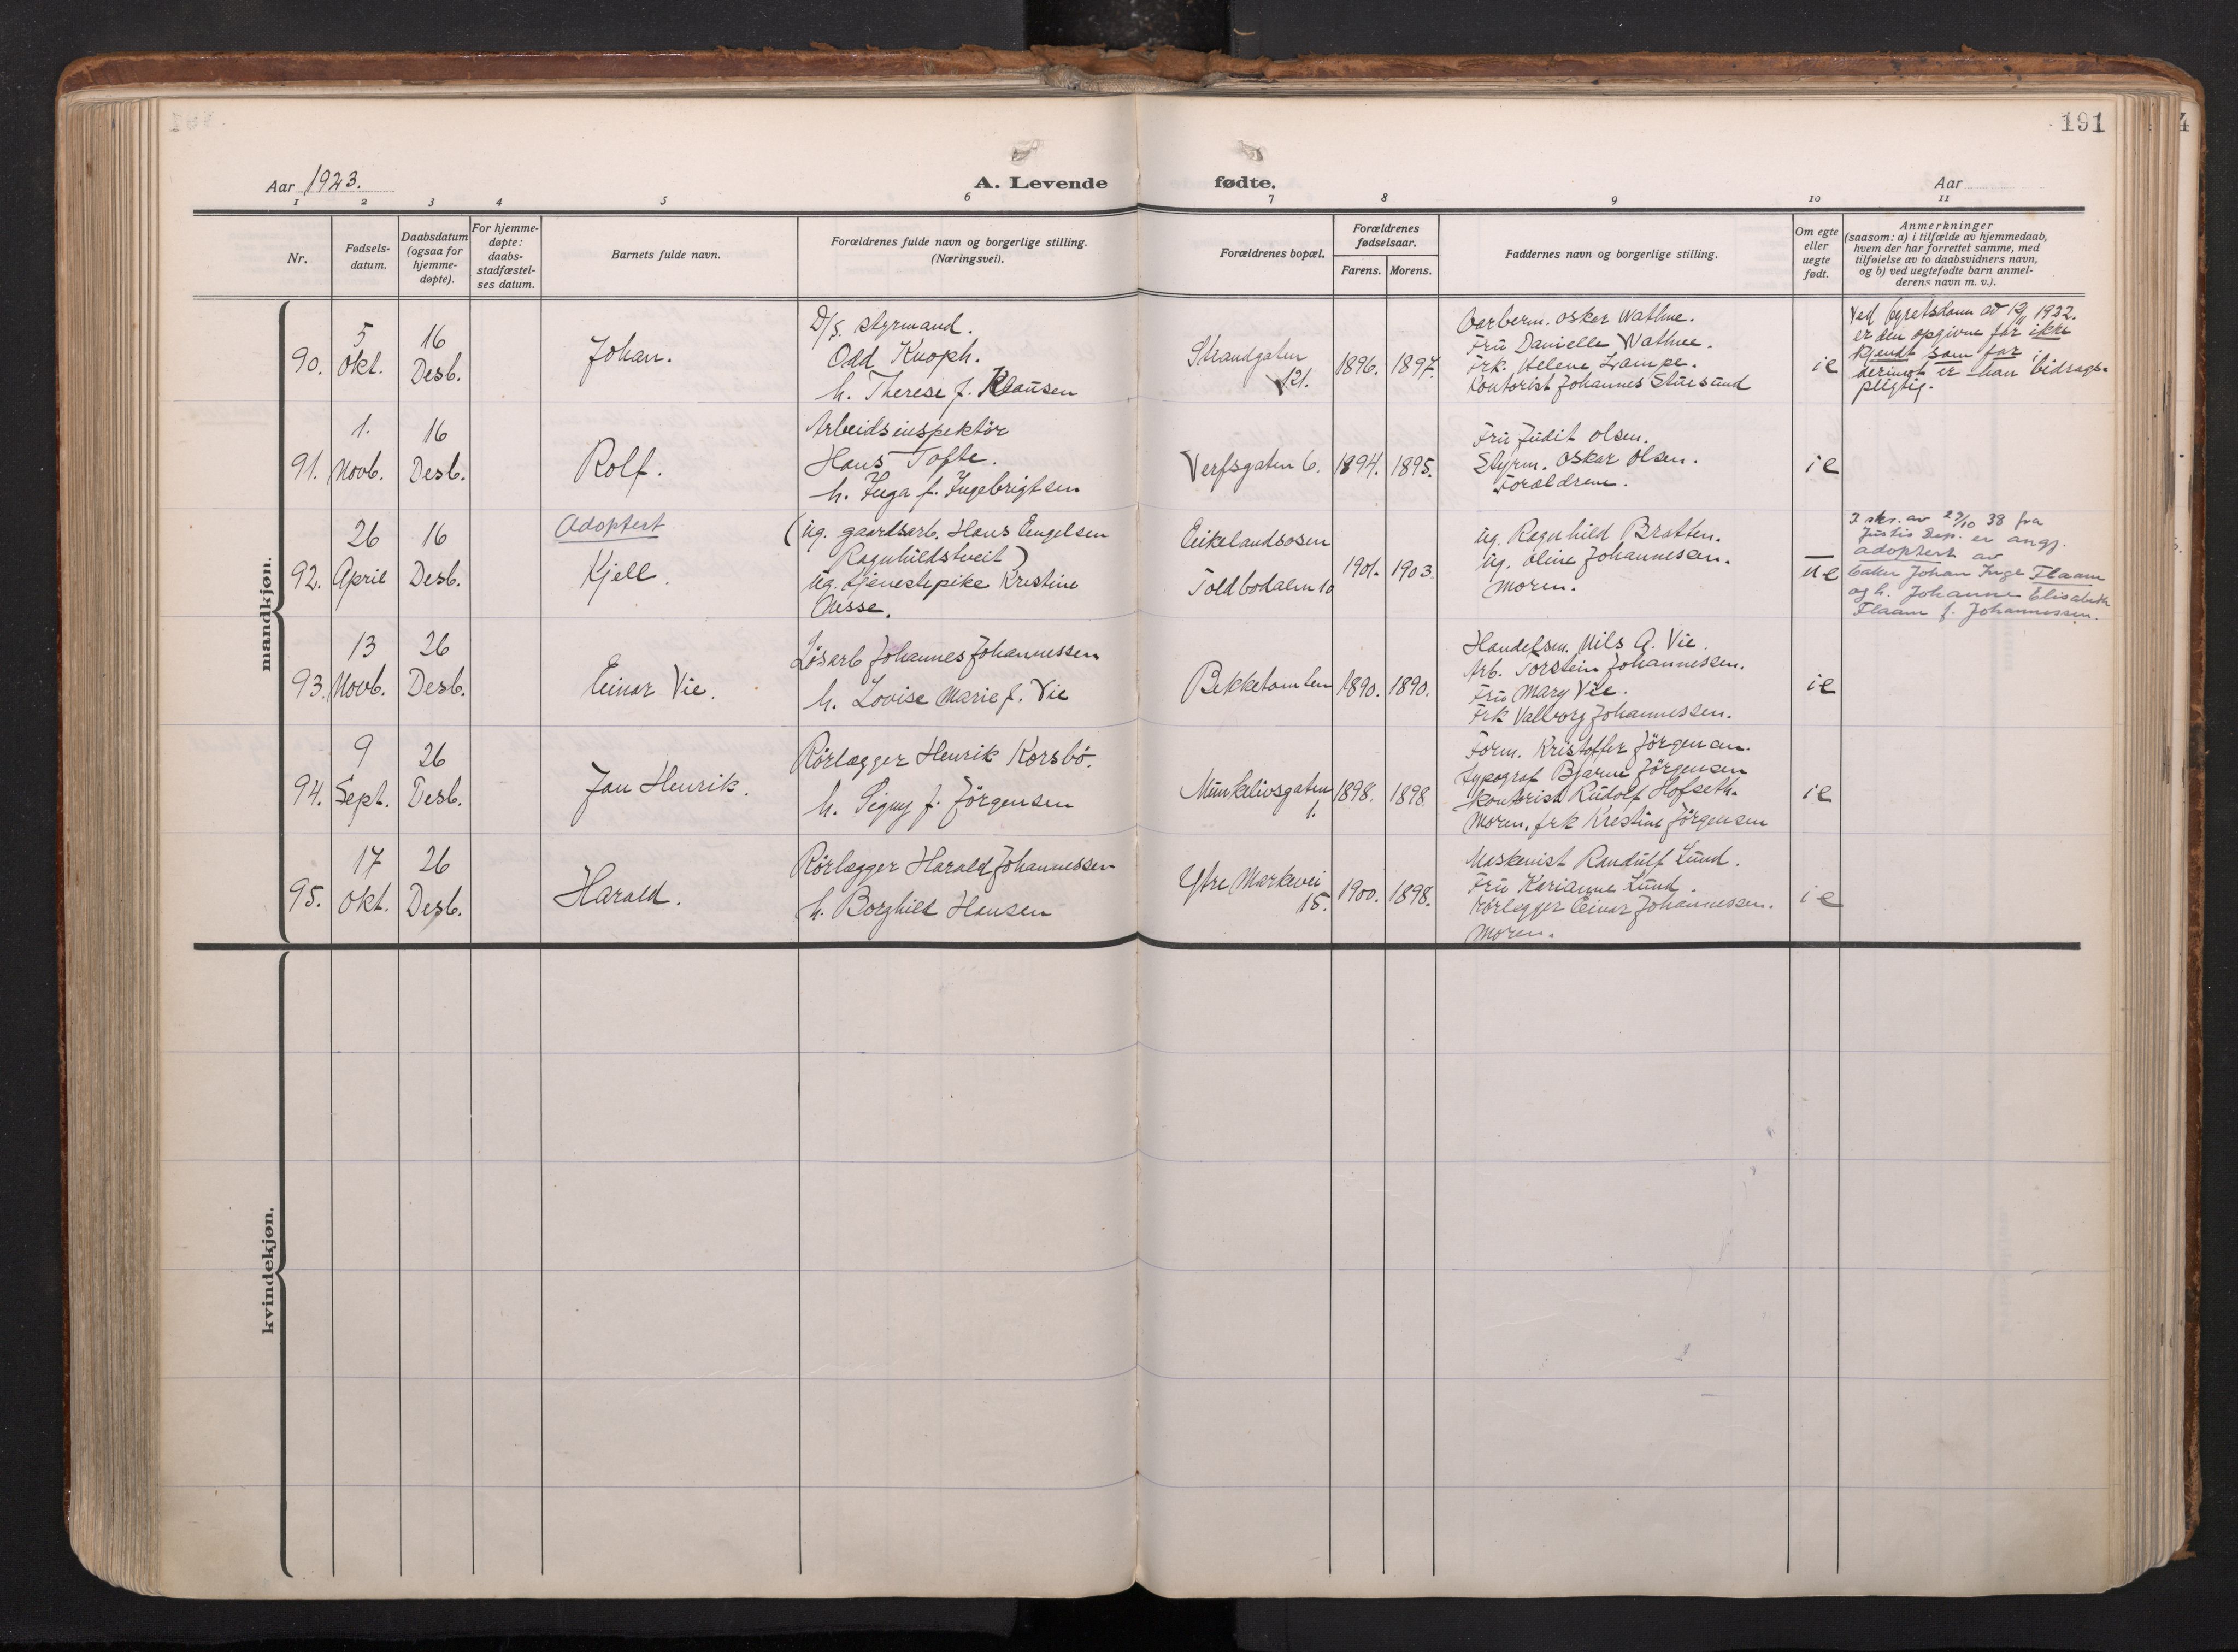 191
Aar 1923.
A. Levende
fødte.
Aar
1 2 3 4 5 6 7 8 9 10 11
Nr.
Fødsels-
datum.
Daabsdatum
(ogsaa for
hjemme-
døpte).
For hjemme-
døpte:
daabs-
stadfæstel-
ses datum.
Barnets fulde navn.
Forældrenes fulde navn og borgerlige stilling.
(Næringsvei).
Forældrenes bopæl.
Forældrenes
fødselsaar.
Farens. Morens.
Faddernes navn og borgerlige stilling.
Om egte
eller
uegte
født.
Anmerkninger
(saasom: a) i tilfælde av hjemmedaab,
hvem der har forrettet samme, med
tilføielse av to daabsvidners navn,
og b) ved uegtefødte barn anmel-
derens navn m. v.).
mandkjøn.
90.
5
Okt.
16
Desb.
Johan.
D/S. styrmand.
Odd Knoph.
h. Therese f. Klausen
Strandgaten
121.
1896. 1897.
Barberm. Oskar Wathne.
Fru Danielle Wathne.
Frk. Helene Lampe.
Kontorist Johannes Stusund
ie
Ved byretsdom av 1932.
er den opgivne far ikke
kjendt som far,
derimot er han bidrags-
pligtig.
91.
1.
Novb.
16
Desb.
Rolf.
Arbeidsinspektør
Hans Tofte.
h. Inga f. Ingebrigtsen
Verfsgaten 6.
1894. 1895.
Fru Judit Olsen.
Styrm. Oskar Olsen.
Forældrene.
ie
92.
26
April
16
Desb.
Adoptert
Kjell.
(Ug. gaardsarb. Hans Engelsen
Ragnhildstveit)
Ug. tjenestepike Kristine
Ousse.
Eikelandsosen
Toldbodalm 10
1901. 1903.
Ug. Ragnhild Bratten.
Ug. Oline Johannesen.
Moren.
ue
I skr. av 27/10 38 fra
Justis Dep. er angj.
adoptert av
Johan Inge Flaam
og h. Johanne Elisabeth
Flaam f. Johannessen.
93.
13
Novb.
26
Desb.
Einar Vie.
Løsarb Johannes Johannessen
h. Lovise Marie f. Vie
Bekketomten
1890. 1890.
Handelsm. Nils A. Vie.
Arb. Torstein Johannessen.
Fru Mary Vie.
Frk Valborg Johannessen.
ie
94.
9
Sept.
26
Desb.
Jan Henrik.
Rørlægger Henrik Korsbø.
h. Signy f. Jörgensen
Munkelivsgaten
1.
1898. 1898.
Form. Kristoffer Jörgensen.
Typograf Bjarne Jörgensen
Kontorist Rudolf Hofseth.
Moren, frk Kristine Jörgensen
ie
95.
17
Okt.
26
Desb.
Harald.
Rørlægger Harald Johannessen
h. Borghild Hansen
Ytre Markevei
15.
1900. 1898.
Maskinist Randulf Lund.
Fru Karianne Lund.
Rørlægger Einar Johannessen.
Moren.
ie
kvindekjøn.